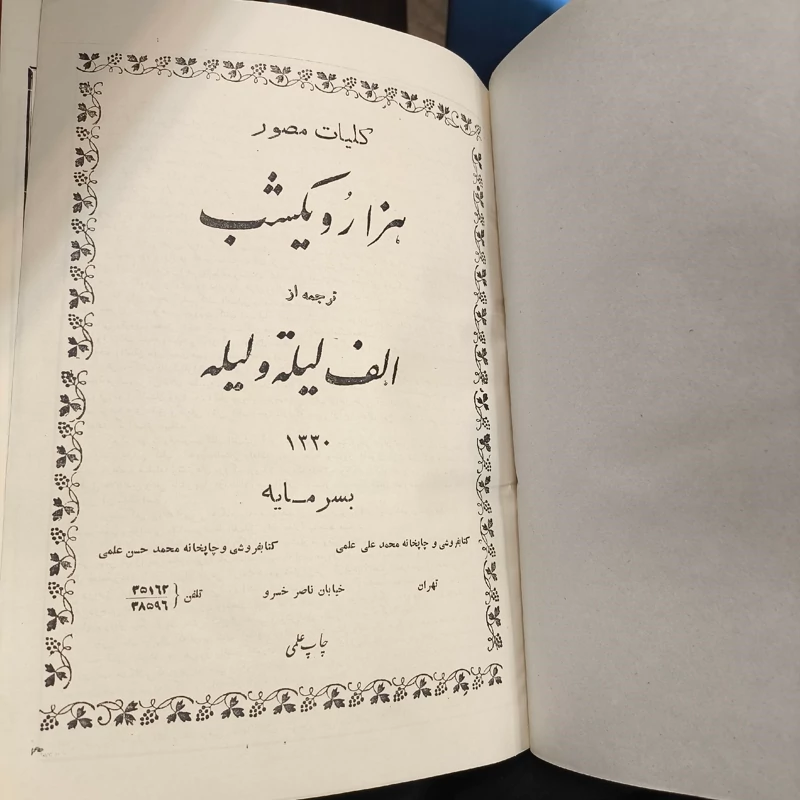 کلیات مصور
هزار و یکشب
ترجمه از
الف لیلة و لیله
۱۳۳۰
بسرمایه
کتابفروشی و چاپخانه محمد علی علمی کتابفروشی و چاپخانه محمد حسن علمی
تهران خیابان ناصر خسرو تلفن { ۳۵۱۶۲
۳۸۵۹۶
چاپ علمی